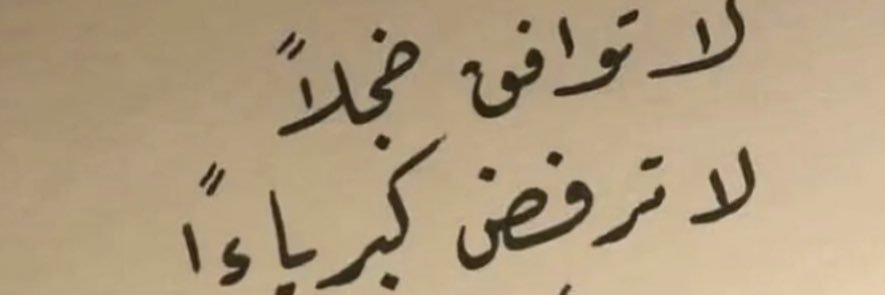 لا توافق خجلاً
لا ترفض كبرياءً